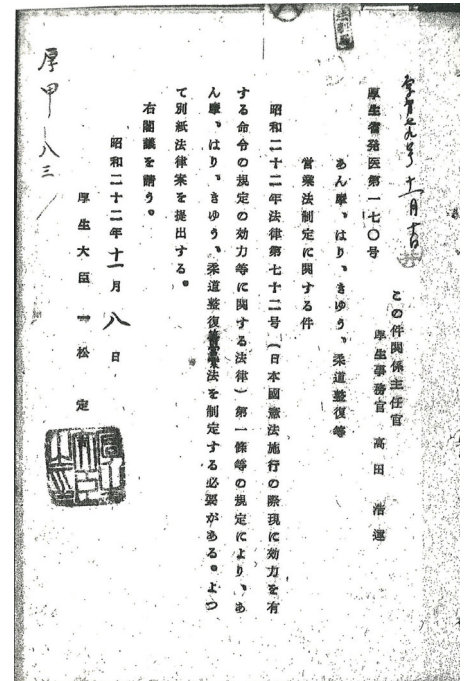 この件関係主任官
厚生事務官 高田 浩運
厚生省発医第一七〇号
あん摩、はり、きゆう、柔道整復等
営業法制定に関する件
昭和二十二年法律第七十二号（日本國憲法施行の際現に効力を有
する命令の規定の効力等に関する法律）第一條等の規定により、あ
ん摩、はり、きゆう、柔道整復等営業法を制定する必要がある。よつ
て別紙法律案を提出する。
右閣議を請う。
昭和二十二年十一月八日
厚生大臣 一松 定
厚甲一八三